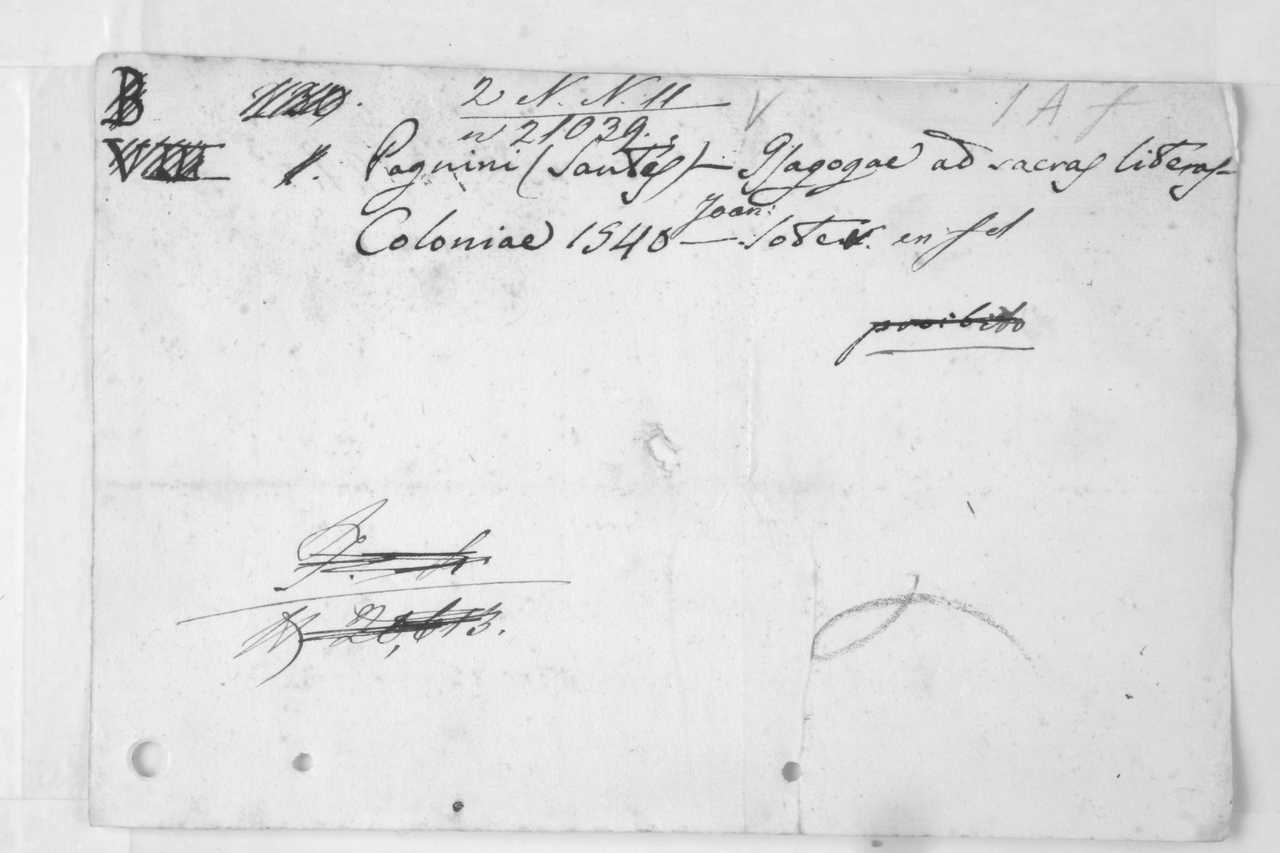 B 1130. 2 N. N. 11 V 1 A f
n 21039.
VIII 1. Pagnini (Santes) - Isagogae ad sacras literas -
Coloniae 1540 - Joan: Soter. en fol
proibito
N 20,613.